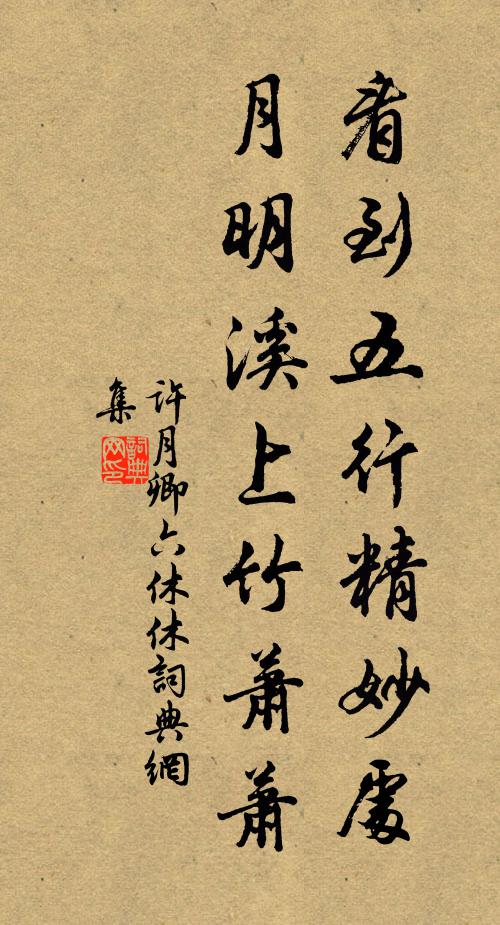 看到五行精妙處
月明溪上竹蕭蕭
許月卿六休休詞典網
集
詞典網印